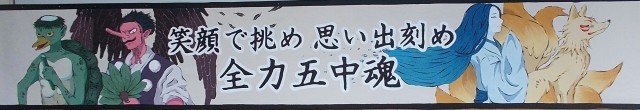 笑顔で挑め 思い出刻め
全力五中魂